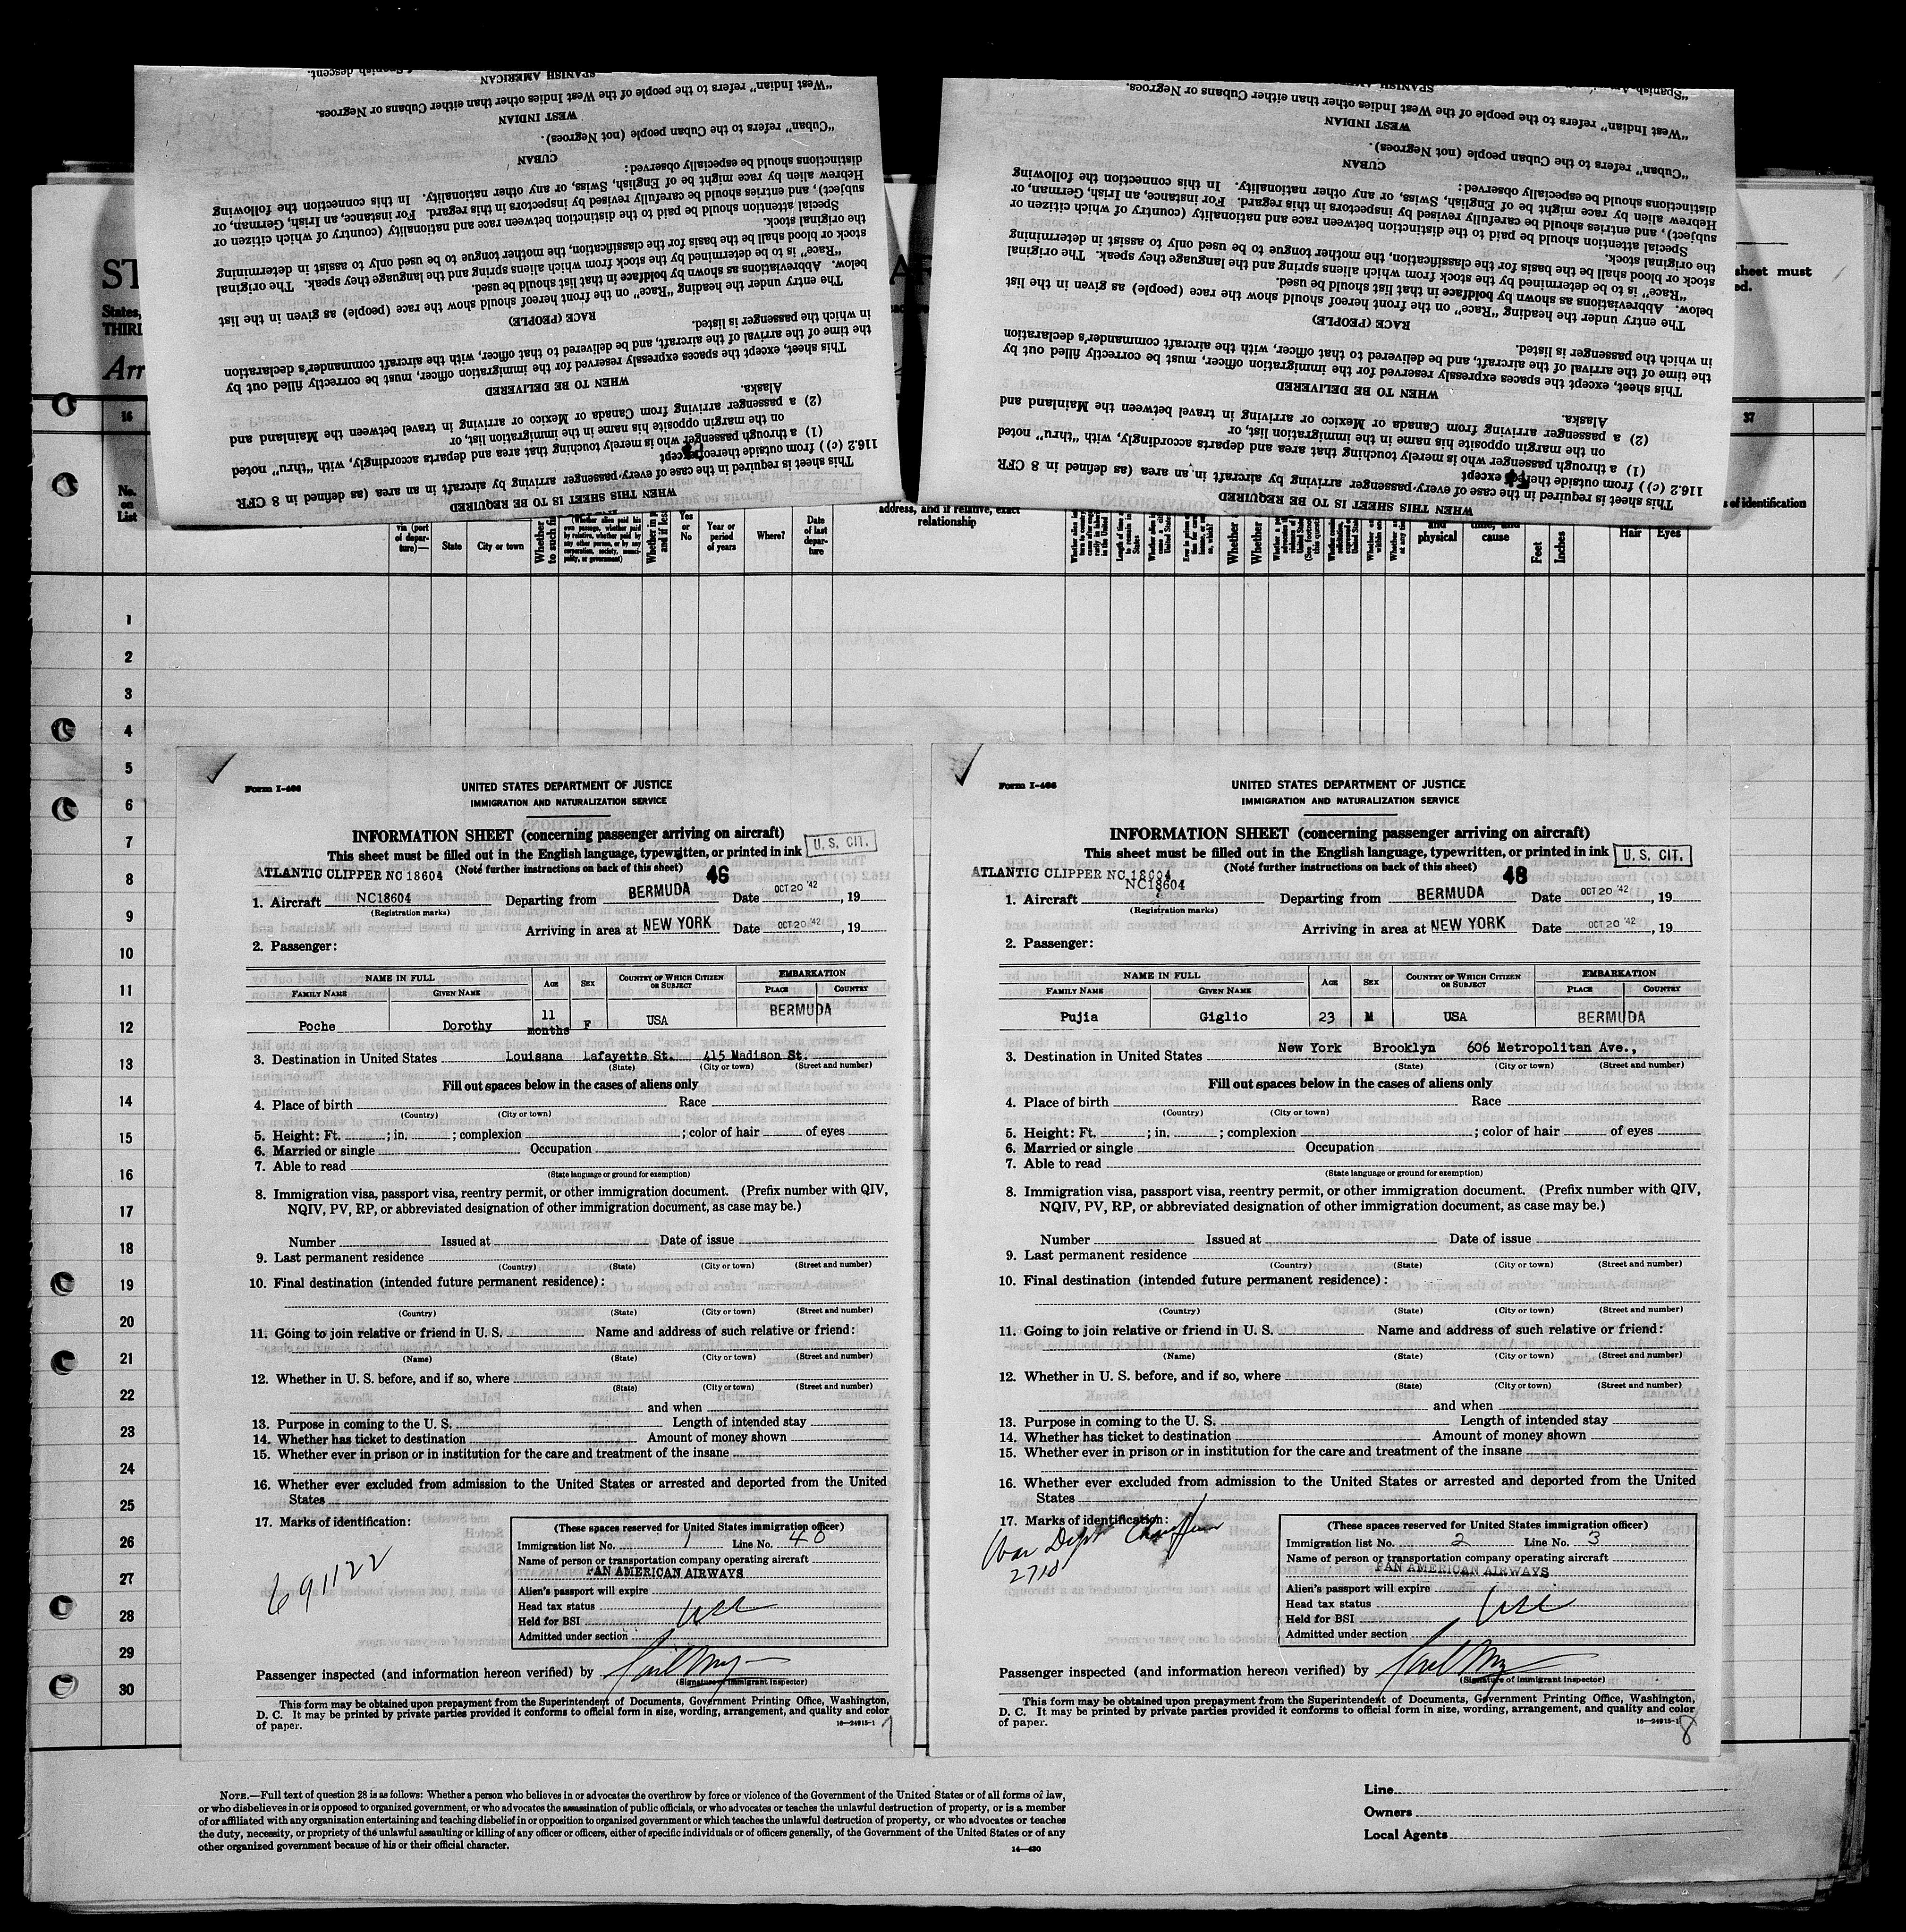 descent.
SPANISH AMERICAN
"West Indian" refers to the people of the West Indies other than either Cubans or Negroes.
WEST INDIAN
"Cuban" refers to the Cuban people (not Negroes).
CUBAN
distinctions should be especially observed:
Hebrew alien by race might be of English, Swiss, or any other nationality. In this connection the following
subject), and entries should be carefully revised by inspectors in this regard. For instance, an Irish, German, or
Special attention should be paid to the distinction between race and nationality (country of which citizen or
the original stock.
stock or blood shall be the basis for the classification, the mother tongue to be used only to assist in determining
"Race" is to be determined by the stock from which aliens spring and the language they speak. The original
below. Abbreviations as shown by boldface in that list should be used.
The entry under the heading "Race" on the front hereof should show the race (people) as given in the list
RACE (PEOPLE)
in which the passenger is listed.
the time of the arrival of the aircraft, and be delivered to that officer, with the aircraft commander's declaration
This sheet, except the spaces expressly reserved for the immigration officer, must be correctly filled out by
WHEN TO BE DELIVERED
Alaska.
(2) a passenger arriving from Canada or Mexico or arriving in travel between the Mainland and
on the margin opposite his name in the immigration list, or
(1) a through passenger who is merely touching that area and departs accordingly, with "thru" noted
116.2 (c)) from outside thereof except
This sheet is required in the case of every passenger arriving by aircraft in an area (as defined in 8 CFR
WHEN THIS SHEET IS TO BE REQUIRED
SPANISH AMERICAN
"West Indian" refers to the people of the West Indies other than either Cubans or Negroes.
WEST INDIAN
"Cuban" refers to the Cuban people (not Negroes).
CUBAN
distinctions should be especially observed:
Hebrew alien by race might be of English, Swiss, or any other nationality. In this connection the following
subject), and entries should be carefully revised by inspectors in this regard. For instance, an Irish, German, or
Special attention should be paid to the distinction between race and nationality (country of which citizen or
the original stock.
stock or blood shall be the basis for the classification, the mother tongue to be used only to assist in determining
"Race" is to be determined by the stock from which aliens spring and the language they speak. The original
below. Abbreviations as shown by boldface in that list should be used.
The entry under the heading "Race" on the front hereof should show the race (people) as given in the list
RACE (PEOPLE)
in which the passenger is listed.
the time of the arrival of the aircraft, and be delivered to that officer, with the aircraft commander's declaration
This sheet, except the spaces expressly reserved for the immigration officer, must be correctly filled out by
WHEN TO BE DELIVERED
Alaska.
(2) a passenger arriving from Canada or Mexico or arriving in travel between the Mainland and
on the margin opposite his name in the immigration list, or
(1) a through passenger who is merely touching that area and departs accordingly, with "thru" noted
116.2 (c)) from outside thereof except
This sheet is required in the case of every passenger arriving by aircraft in an area (as defined in 8 CFR
WHEN THIS SHEET IS TO BE REQUIRED
ST
States,
THIRD
Arr
sheet must
16
37
No. on List
via (port of departure)—
State
City or town
Yes or No
Year or period of years
Where?
Date of last departure
address, and if relative, exact relationship
physical
cause
Feet
Inches
Hair
Eyes
of identification
1
2
3
4
5
6
7
8
9
10
11
12
13
14
15
16
17
18
19
20
21
22
23
24
25
26
27
28
29
30
Form I-466
UNITED STATES DEPARTMENT OF JUSTICE
IMMIGRATION AND NATURALIZATION SERVICE
INFORMATION SHEET (concerning passenger arriving on aircraft)
This sheet must be filled out in the English language, typewritten, or printed in ink
U. S. CIT.
(Note further instructions on back of this sheet)
ATLANTIC CLIPPER NC 18604
46
1. Aircraft NC18604 Departing from BERMUDA Date OCT 20 '42, 19
(Registration marks)
Arriving in area at NEW YORK Date OCT 20 '42, 19
2. Passenger:
NAME IN FULL AGE SEX COUNTRY OF WHICH CITIZEN OR SUBJECT EMBARKATION
FAMILY NAME GIVEN NAME PLACE COUNTRY
Poche Dorothy 11 months F USA BERMUDA
3. Destination in United States Louisana Lafayette St. 415 Madison St.
(State) (City or town) (Street and number)
Fill out spaces below in the cases of aliens only
4. Place of birth Race
(Country) (City or town)
5. Height: Ft. ; in. ; complexion ; color of hair of eyes
6. Married or single Occupation
7. Able to read
(State language or ground for exemption)
8. Immigration visa, passport visa, reentry permit, or other immigration document. (Prefix number with QIV,
NQIV, PV, RP, or abbreviated designation of other immigration document, as case may be.)
Number Issued at Date of issue
9. Last permanent residence
(Country) (State) (City or town) (Street and number)
10. Final destination (intended future permanent residence):
(Country) (State) (City or town) (Street and number)
11. Going to join relative or friend in U. S. Name and address of such relative or friend:
(Name) (State) (City or town) (Street and number)
12. Whether in U. S. before, and if so, where
(State) (City or town) (Street and number)
and when
13. Purpose in coming to the U. S. Length of intended stay
14. Whether has ticket to destination Amount of money shown
15. Whether ever in prison or in institution for the care and treatment of the insane
16. Whether ever excluded from admission to the United States or arrested and deported from the United
States
17. Marks of identification:
691122
(These spaces reserved for United States immigration officer)
Immigration list No. 1 Line No. 48
Name of person or transportation company operating aircraft
PAN AMERICAN AIRWAYS
Alien's passport will expire
Head tax status
Held for BSI
Admitted under section
Passenger inspected (and information hereon verified) by
(Signature of immigrant inspector)
This form may be obtained upon prepayment from the Superintendent of Documents, Government Printing Office, Washington,
D. C. It may be printed by private parties provided it conforms to official form in size, wording, arrangement, and quality and color
of paper.
16—24915-1
7
Form I-466
UNITED STATES DEPARTMENT OF JUSTICE
IMMIGRATION AND NATURALIZATION SERVICE
INFORMATION SHEET (concerning passenger arriving on aircraft)
This sheet must be filled out in the English language, typewritten, or printed in ink
U. S. CIT.
(Note further instructions on back of this sheet)
ATLANTIC CLIPPER NC 18604
48
NC18604
1. Aircraft Departing from BERMUDA Date OCT 20 '42, 19
(Registration marks)
Arriving in area at NEW YORK Date OCT 20 '42, 19
2. Passenger:
NAME IN FULL AGE SEX COUNTRY OF WHICH CITIZEN OR SUBJECT EMBARKATION
FAMILY NAME GIVEN NAME PLACE COUNTRY
Pujia Giglio 23 M USA BERMUDA
3. Destination in United States New York Brooklyn 606 Metropolitan Ave.,
(State) (City or town) (Street and number)
Fill out spaces below in the cases of aliens only
4. Place of birth Race
(Country) (City or town)
5. Height: Ft. ; in. ; complexion ; color of hair of eyes
6. Married or single Occupation
7. Able to read
(State language or ground for exemption)
8. Immigration visa, passport visa, reentry permit, or other immigration document. (Prefix number with QIV,
NQIV, PV, RP, or abbreviated designation of other immigration document, as case may be.)
Number Issued at Date of issue
9. Last permanent residence
(Country) (State) (City or town) (Street and number)
10. Final destination (intended future permanent residence):
(Country) (State) (City or town) (Street and number)
11. Going to join relative or friend in U. S. Name and address of such relative or friend:
(Name) (State) (City or town) (Street and number)
12. Whether in U. S. before, and if so, where
(State) (City or town) (Street and number)
and when
13. Purpose in coming to the U. S. Length of intended stay
14. Whether has ticket to destination Amount of money shown
15. Whether ever in prison or in institution for the care and treatment of the insane
16. Whether ever excluded from admission to the United States or arrested and deported from the United
States
17. Marks of identification:
War Dept
(These spaces reserved for United States immigration officer)
Immigration list No. 2 Line No. 3
Name of person or transportation company operating aircraft
PAN AMERICAN AIRWAYS
Alien's passport will expire
Head tax status
Held for BSI
Admitted under section
Passenger inspected (and information hereon verified) by
(Signature of immigrant inspector)
This form may be obtained upon prepayment from the Superintendent of Documents, Government Printing Office, Washington,
D. C. It may be printed by private parties provided it conforms to official form in size, wording, arrangement, and quality and color
of paper.
16—24915-1
8
NOTE.—Full text of question 28 is as follows: Whether a person who believes in or advocates the overthrow by force or violence of the Government of the United States or of all forms of law,
or who disbelieves in or is opposed to organized government, or who advocates the assassination of public officials, or who advocates or teaches the unlawful destruction of property, or is a member
of or affiliated with any organization entertaining and teaching disbelief in or opposition to organized government or which teaches the unlawful destruction of property, or who advocates or teaches
the duty, necessity, or propriety of the unlawful assaulting or killing of any officer or officers, either of specific individuals or of officers generally, of the Government of the United States or of any
other organized government because of his or their official character.
14—430
Line
Owners
Local Agents